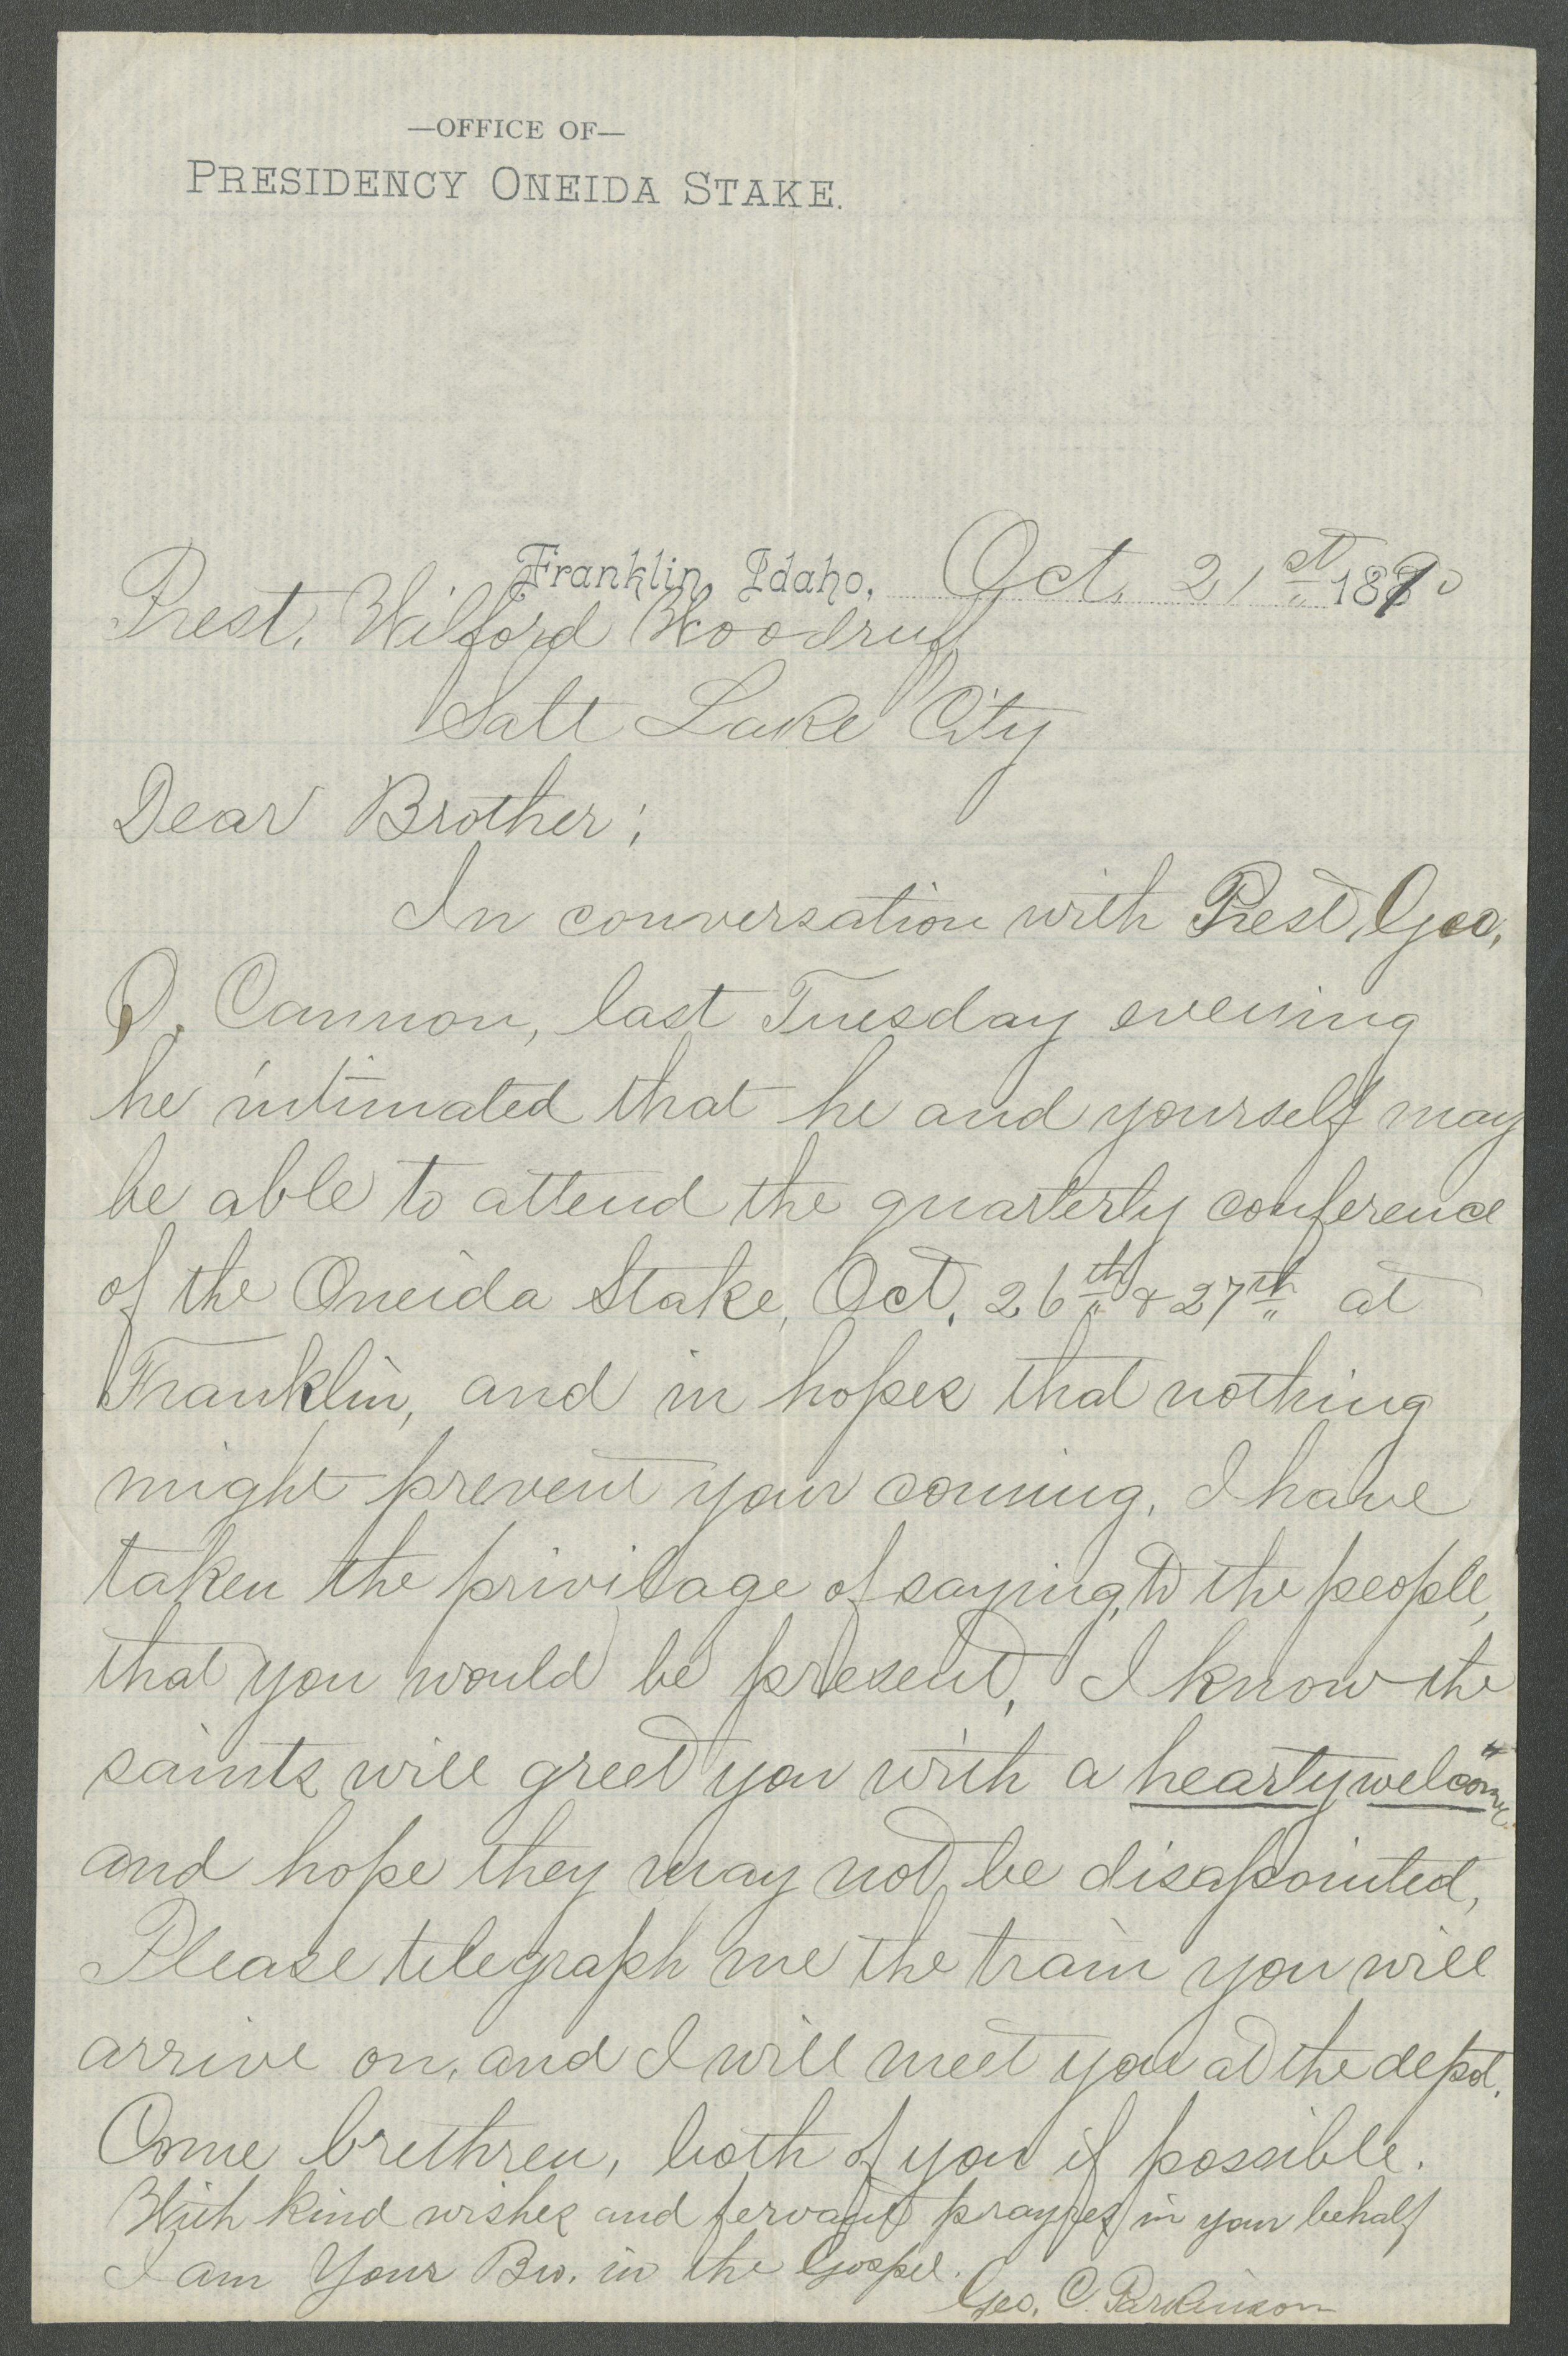 —OFFICE OF—
PRESIDENCY ONEIDA STAKE.
Franklin, Idaho, Oct. 21st 1890
Prest. Wilford Woodruff
Salt Lake City
Dear Brother;
In conversation with Prest, Geo,
Q. Cannon, last Tuesday evening
he intimated that he and yourself may
be able to attend the quarterly conference
of the Oneida Stake, Oct. 26th & 27th at
Franklin, and in hopes that nothing
might prevent your coming, I have
taken the privilage of saying, to the people,
that you would be present, I know the
saints will greet you with a hearty welcome
and hope they may not be disapointed,
Please telegraph me the train you will
arrive on, and I will meet you at the depot.
Come brethren, both of you if possible.
With kind wishes and fervant prayres in your behalf
I am Your Bro. in the Gospel.
Geo. C. Parkinson